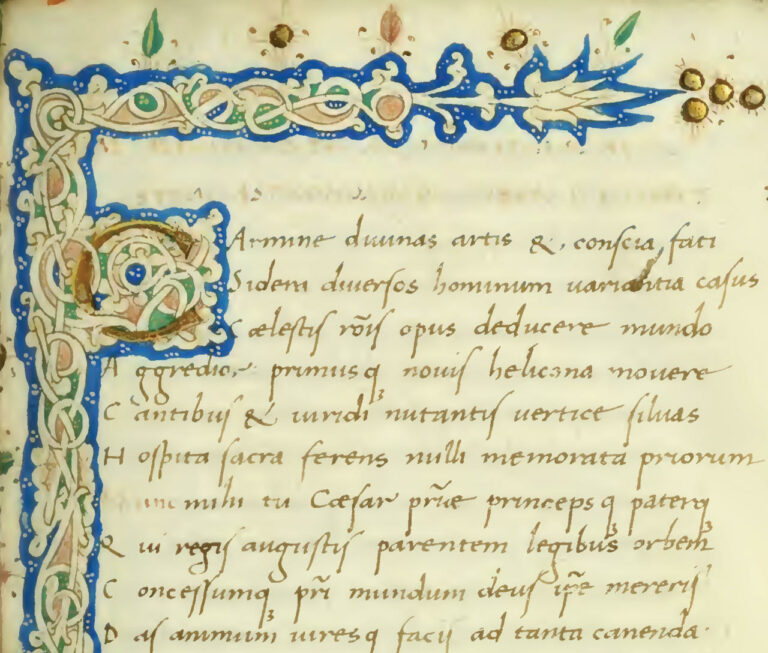 CArmine diuinas artis &, conscia fati
Sidera diuersos hominum uariantia casus
Cælestis rōis opus deducere mundo
Aggredior primusq nouis helicona mouere
Cantibus & uiridi nutantis uertice siluas
Hospita sacra ferens nulli memorata priorum
unc mihi tu Cæsar pr̄ie princepsq paterq
Qui regis augustis parentem legibus orbem
Concessumq pr̄i mundum deus ip̄e mereris
Das animum uiresq facis ad tanta canenda.